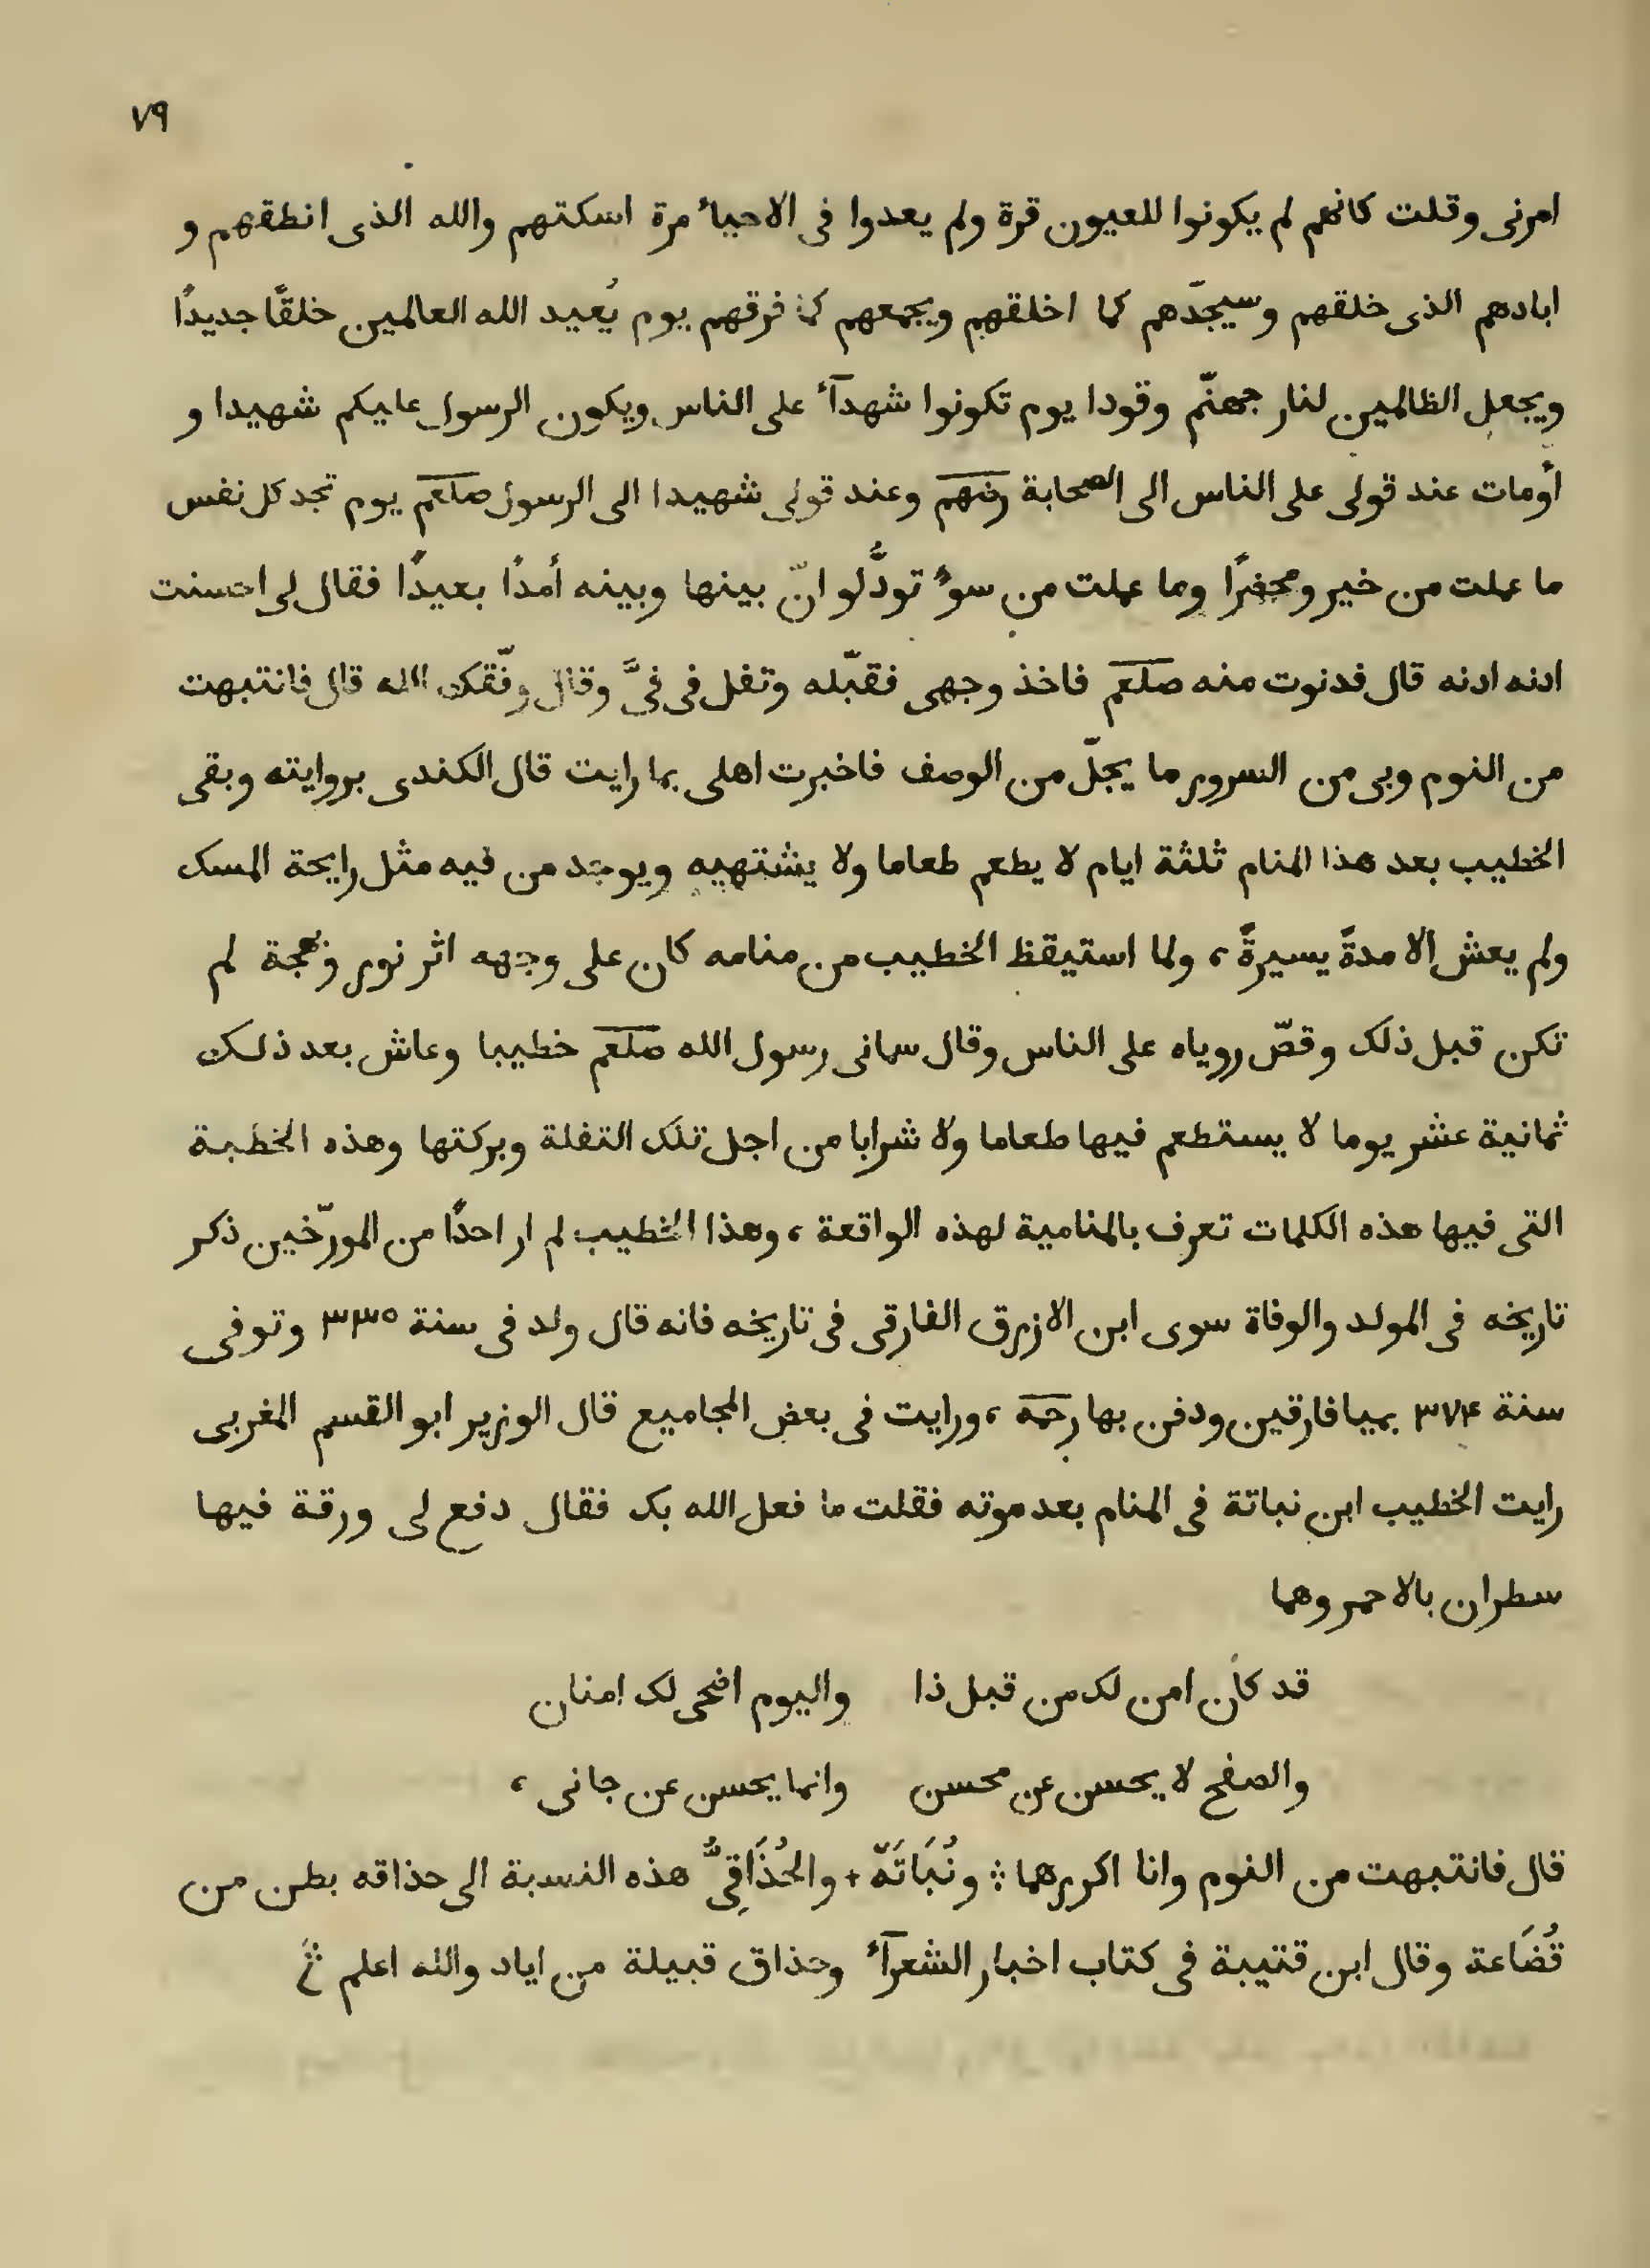 ٧٩
امرنى وقلت كانهم لم يكونوا للعيون قرة ولم يعدوا فى الاحياء مرة اسكتهم والله الذى انطقهم و
ابادهم الذى خلقهم وسيجدّهم كما اخلقهم ويجمعهم كما فرقهم يوم يُعيد الله العالمين خلقًا جديدًا
ويجعل الظالمين لنار جهنّم وقودا يوم تكونوا شهدآء على الناس ويكون الرسول عليكم شهيدا و
أومات عند قولى على الناس الى الصحابة رضهم وعند قولى شهيدا الى الرسول صلعم يوم تجد كل نفس
ما عملت من خير ومحضرًا وما عملت من سوءٍ تودُّ لو انّ بينها وبينه أمدًا بعيدًا فقال لى احسنت
ادنه ادنه قال فدنوت منه صلعم فاخذ وجهى فقبّله وتفل فى فىَّ وقال وفّقك الله قال فانتبهت
من النوم وبى من السرور ما يجلّ من الوصف فاخبرت اهلى بما رايت قال الكندى بروايته وبقى
الخطيب بعد هذا المنام ثلثة ايام لا يطعم طعاما ولا يشتهيه ويوجد من فيه مثل رايحة المسك
ولم يعش الا مدةً يسيرةً، ولما استيقظ الخطيب من منامه كان على وجهه اثر نور وبهجة لم
تكن قبل ذلك وقصّ روياه على الناس وقال سمانى رسول الله صلعم خطيبا وعاش بعد ذلك
ثمانية عشر يوما لا يستطعم فيها طعاما ولا شرابا من اجل تلك التفلة وبركتها وهذه الخطبة
التى فيها هذه الكلمات تعرف بالمنامية لهذه الواقعة، وهذا الخطيب لم ار احدًا من المورّخين ذكر
تاريخه فى المولد والوفاة سوى ابن الازرق الفارقى فى تاريخه فانه قال ولد فى سنة ٣٣٥ وتوفى
سنة ٣٧٤ بميافارقين ودفن بها رحمه، ورايت فى بعض المجاميع قال الوزير ابو القسم المغربى
رايت الخطيب ابن نباتة فى المنام بعد موته فقلت ما فعل الله بك فقال دفع لى ورقة فيها
سطران بالاحمر وهما
قد كان امن لك من قبل ذا واليوم اضحى لك امنان
والصفح لا يحسن عن محسن وانما يحسن عن جانى،
قال فانتبهت من النوم وانا اكررهما ؛ ونُبَاتَةَ + والحُذَاقِىُّ هذه النسبة الى حذاقه بطن من
قُضَاعة وقال ابن قتيبة فى كتاب اخبار الشعرآء وحذاق قبيلة من اياد والله اعلم